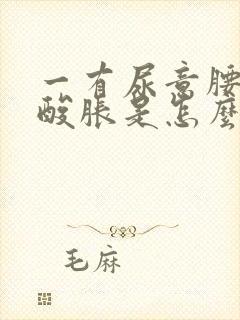 一有尿意腰
酸脹是怎麼
毛麻